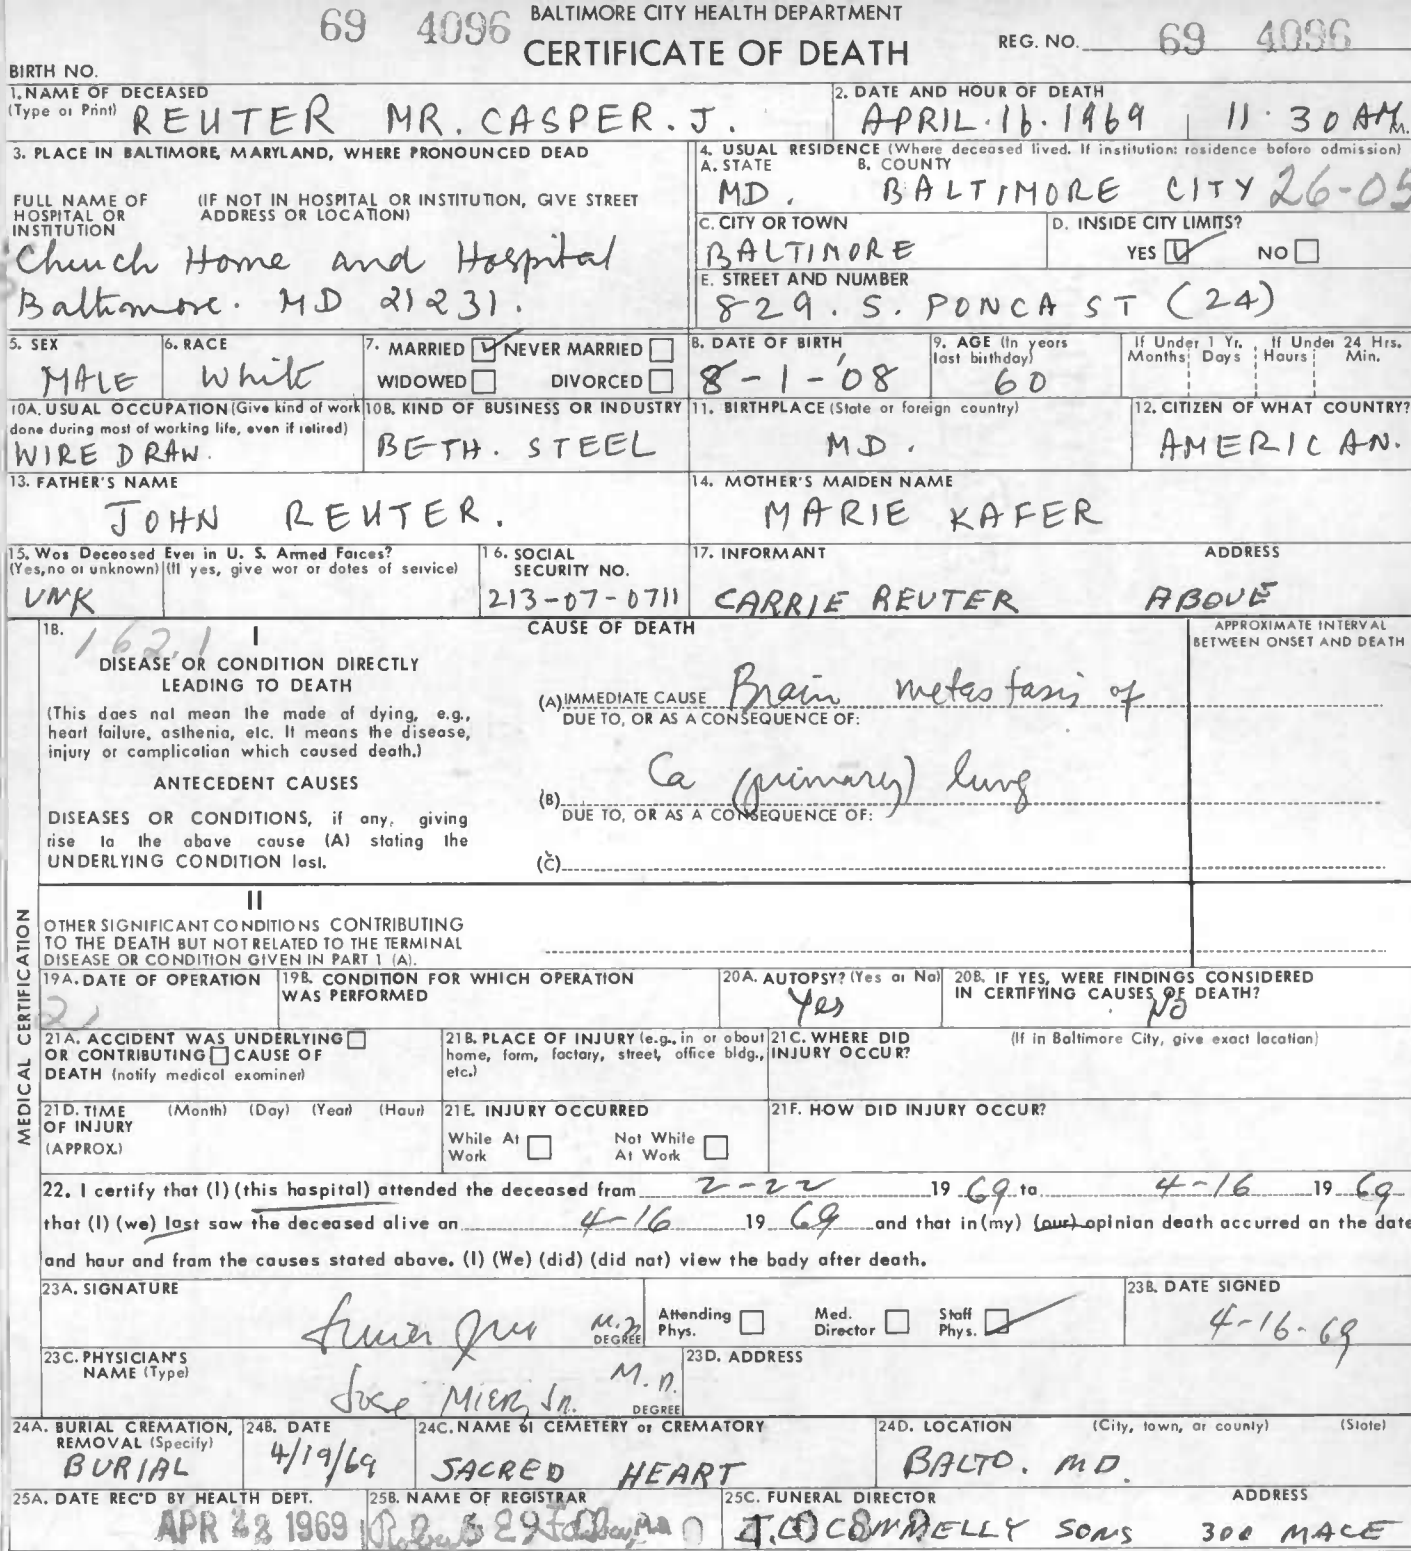 69 4096 BALTIMORE CITY HEALTH DEPARTMENT
CERTIFICATE OF DEATH
REG. NO. 69 4096
BIRTH NO.
1. NAME OF DECEASED
(Type or Print) REUTER MR. CASPER. J.
2. DATE AND HOUR OF DEATH
APRIL. 16. 1969 11. 30 AM.
3. PLACE IN BALTIMORE, MARYLAND, WHERE PRONOUNCED DEAD
FULL NAME OF HOSPITAL OR INSTITUTION
(IF NOT IN HOSPITAL OR INSTITUTION, GIVE STREET ADDRESS OR LOCATION)
Church Home and Hospital
Baltimore. MD 21231.
4. USUAL RESIDENCE (Where deceased lived. If institution: residence before admission)
A. STATE B. COUNTY
MD. BALTIMORE CITY 26-05
C. CITY OR TOWN
BALTIMORE
D. INSIDE CITY LIMITS?
YES NO
E. STREET AND NUMBER
829. S. PONCA ST (24)
5. SEX
MALE
6. RACE
White
7. MARRIED NEVER MARRIED
WIDOWED DIVORCED
8. DATE OF BIRTH
8-1-'08
9. AGE (In years last birthday)
60
If Under 1 Yr. If Under 24 Hrs.
Months Days Hours Min.
10A. USUAL OCCUPATION (Give kind of work done during most of working life, even if retired)
WIRE DRAW.
10B. KIND OF BUSINESS OR INDUSTRY
BETH. STEEL
11. BIRTHPLACE (State or foreign country)
MD.
12. CITIZEN OF WHAT COUNTRY?
AMERICAN.
13. FATHER'S NAME
JOHN REUTER.
14. MOTHER'S MAIDEN NAME
MARIE KAFER
15. Was Deceased Ever in U. S. Armed Forces?
(Yes, no or unknown) (If yes, give war or dates of service)
UNK
16. SOCIAL SECURITY NO.
213-07-0711
17. INFORMANT ADDRESS
CARRIE REUTER ABOVE
18. 162.1 I
CAUSE OF DEATH
APPROXIMATE INTERVAL
BETWEEN ONSET AND DEATH
DISEASE OR CONDITION DIRECTLY
LEADING TO DEATH
(This does not mean the mode of dying, e.g.,
heart failure, asthenia, etc. It means the disease,
injury or complication which caused death.)
ANTECEDENT CAUSES
DISEASES OR CONDITIONS, if any, giving
rise to the above cause (A) stating the
UNDERLYING CONDITION last.
(A) IMMEDIATE CAUSE Brain metastasis of
DUE TO, OR AS A CONSEQUENCE OF:
(B) Ca (primary) lung
DUE TO, OR AS A CONSEQUENCE OF:
(C)
MEDICAL CERTIFICATION
II
OTHER SIGNIFICANT CONDITIONS CONTRIBUTING
TO THE DEATH BUT NOT RELATED TO THE TERMINAL
DISEASE OR CONDITION GIVEN IN PART 1 (A).
19A. DATE OF OPERATION
19B. CONDITION FOR WHICH OPERATION WAS PERFORMED
20A. AUTOPSY? (Yes or No)
Yes
20B. IF YES, WERE FINDINGS CONSIDERED IN CERTIFYING CAUSES OF DEATH?
No
21A. ACCIDENT WAS UNDERLYING
OR CONTRIBUTING CAUSE OF
DEATH (notify medical examiner)
21B. PLACE OF INJURY (e.g., in or about
home, farm, factory, street, office bldg.,
etc.)
21C. WHERE DID INJURY OCCUR?
(If in Baltimore City, give exact location)
21D. TIME OF INJURY (APPROX.)
(Month) (Day) (Year) (Hour)
21E. INJURY OCCURRED
While At Work Not While At Work
21F. HOW DID INJURY OCCUR?
22. I certify that (I) (this hospital) attended the deceased from 2-22 19 69 to 4-16 19 69
that (I) (we) last saw the deceased alive on 4-16 19 69 and that in (my) (our) opinion death occurred on the date
and hour and from the causes stated above. (I) (We) (did) (did not) view the body after death.
23A. SIGNATURE
M.D. DEGREE
Attending Phys. Med. Director Staff Phys.
23B. DATE SIGNED
4-16-69
23C. PHYSICIAN'S NAME (Type)
Jose MIER, Jr. M.D. DEGREE
23D. ADDRESS
24A. BURIAL CREMATION, REMOVAL (Specify)
BURIAL
24B. DATE
4/19/69
24C. NAME of CEMETERY or CREMATORY
SACRED HEART
24D. LOCATION (City, town, or county) (State)
BALTO. MD.
25A. DATE REC'D BY HEALTH DEPT.
APR 1969
25B. NAME OF REGISTRAR
25C. FUNERAL DIRECTOR ADDRESS
CONNELLY SONS 300 MACE